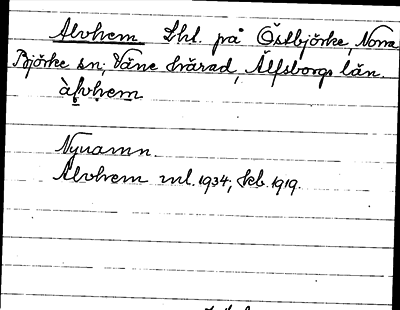 Alvhem Lht. på Östbjörke, Norra
Björke sn; Väne härad, Älfsborgs län.
àl̥vhem
Nynamn.
Alvhem ml. 1934, skb. 1919.